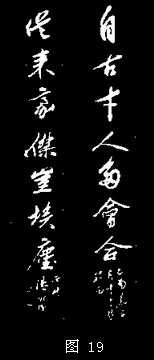 自古才人多會合
從来豪傑豈埃塵
图 19